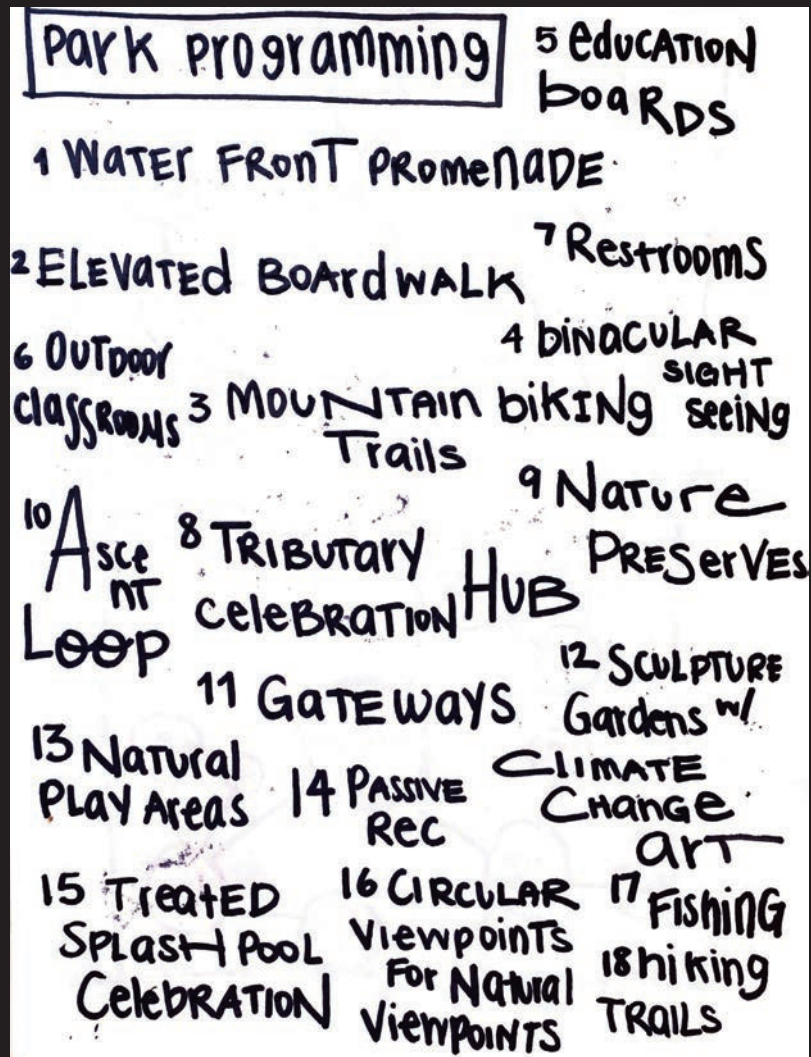 Park Programming
5 Education
boards
1 Water Front Promenade
2 Elevated Boardwalk
7 Restrooms
6 Outdoor
classrooms
3 Mountain biking
Trails
4 binacular
sight
seeing
9 Nature
Preserves
10 Asce
nt
Loop
8 Tributary
Celebration Hub
11 Gateways
12 Sculpture
Gardens w/
Climate
Change
art
13 Natural
Play Areas
14 Passive
Rec
15 Treated
Splash Pool
Celebration
16 Circular
Viewpoints
For Natural
Viewpoints
17 Fishing
18 hiking
Trails